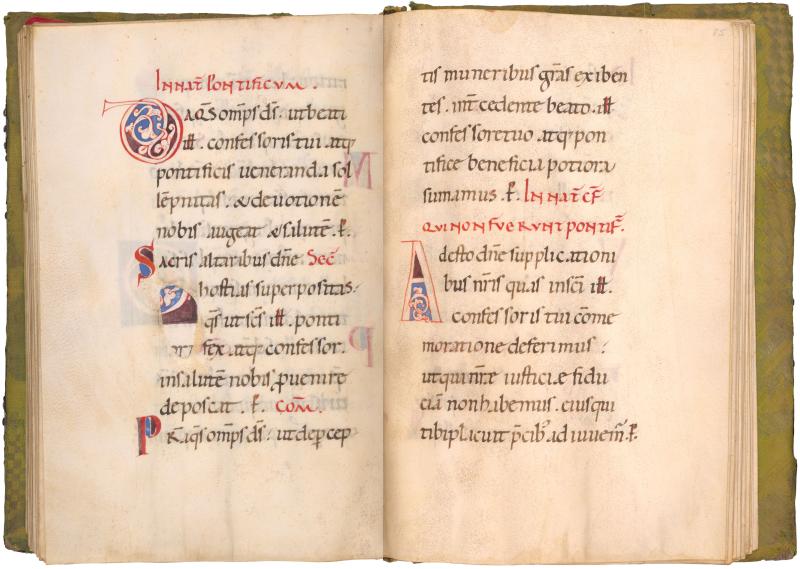 IN NAT̄ PONTIFICVM.
DA Q̄S OMP̄S D̄S. ut beati
ill. confessoris tui atq;
pontificis ueneranda sol
lēpnitas. & deuotionē
nobis augeat & salutē. ꝑ.
Sacris altaribus dn̄e SEC̄
hostias superpositas.
q̄s ut sc̄s ill. ponti
fex atq; confessor.
in salutē nobis ꝓuenire
deposcat. ꝑ. COM̄.
PR. Q̄s omp̄s d̄s. ut de ꝑcep
85
tis muneribus gr̄as exiben
tes. int̄cedente beato. ill
confessore tuo atq; pon
tifice beneficia potiora
sumamus. ꝑ. IN NAT̄ CF̄
QUI NON FUERUNT PONTIF̄.
Adesto dn̄e supplicationi
bus nr̄is quas in sc̄i ill.
confessoris tui cōme
moratione deferimus.
ut qui nr̄e iusticiæ fidu
ciā non habemus. eius qui
tibi placuit p̄cib; adiuuem̄. ꝑ.